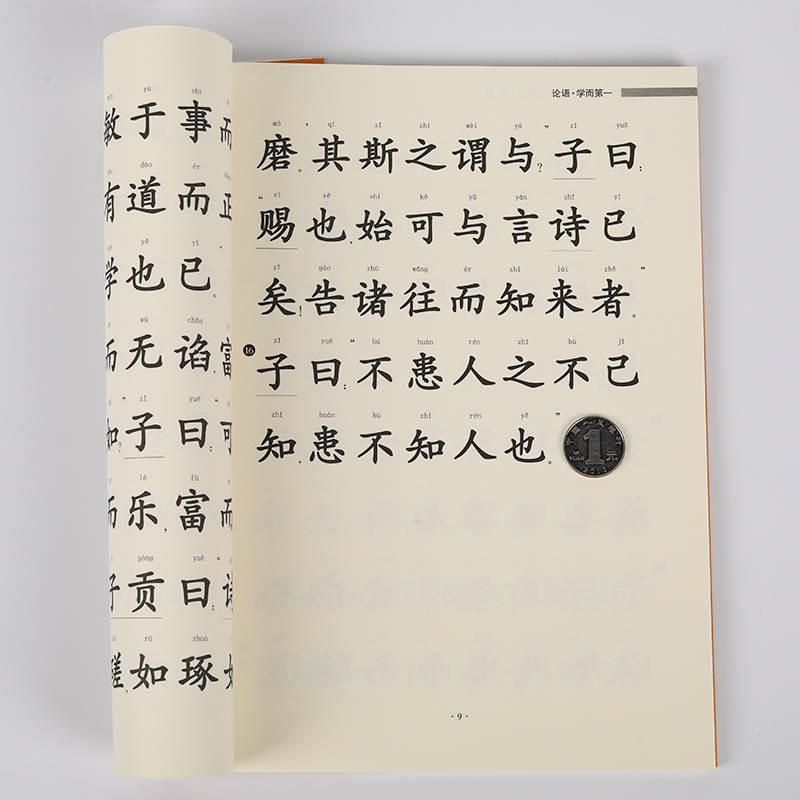 yú shì
敏于事而
dào ér
有道而正
yě yǐ
学也已。
wú chǎn
而无谄,富
zǐ yuē
如?”子曰:“可
lè fù
而乐,富而
gòng yuē
子贡曰:“诗
rú zhuó
磋,如琢,如
论语·学而第一
mó qí sī zhī wèi yú zǐ yuē
磨。’其斯之谓与?”子曰:
cì yě shǐ kě yǔ yán shī yǐ
“赐也,始可与言诗已
yǐ gào zhū wǎng ér zhī lái zhě
矣!告诸往而知来者。”
zǐ yuē bú huàn rén zhī bù jǐ
16 子曰:“不患人之不己
zhī huàn bù zhī rén yě
知,患不知人也。”
1 元
2013
·9·